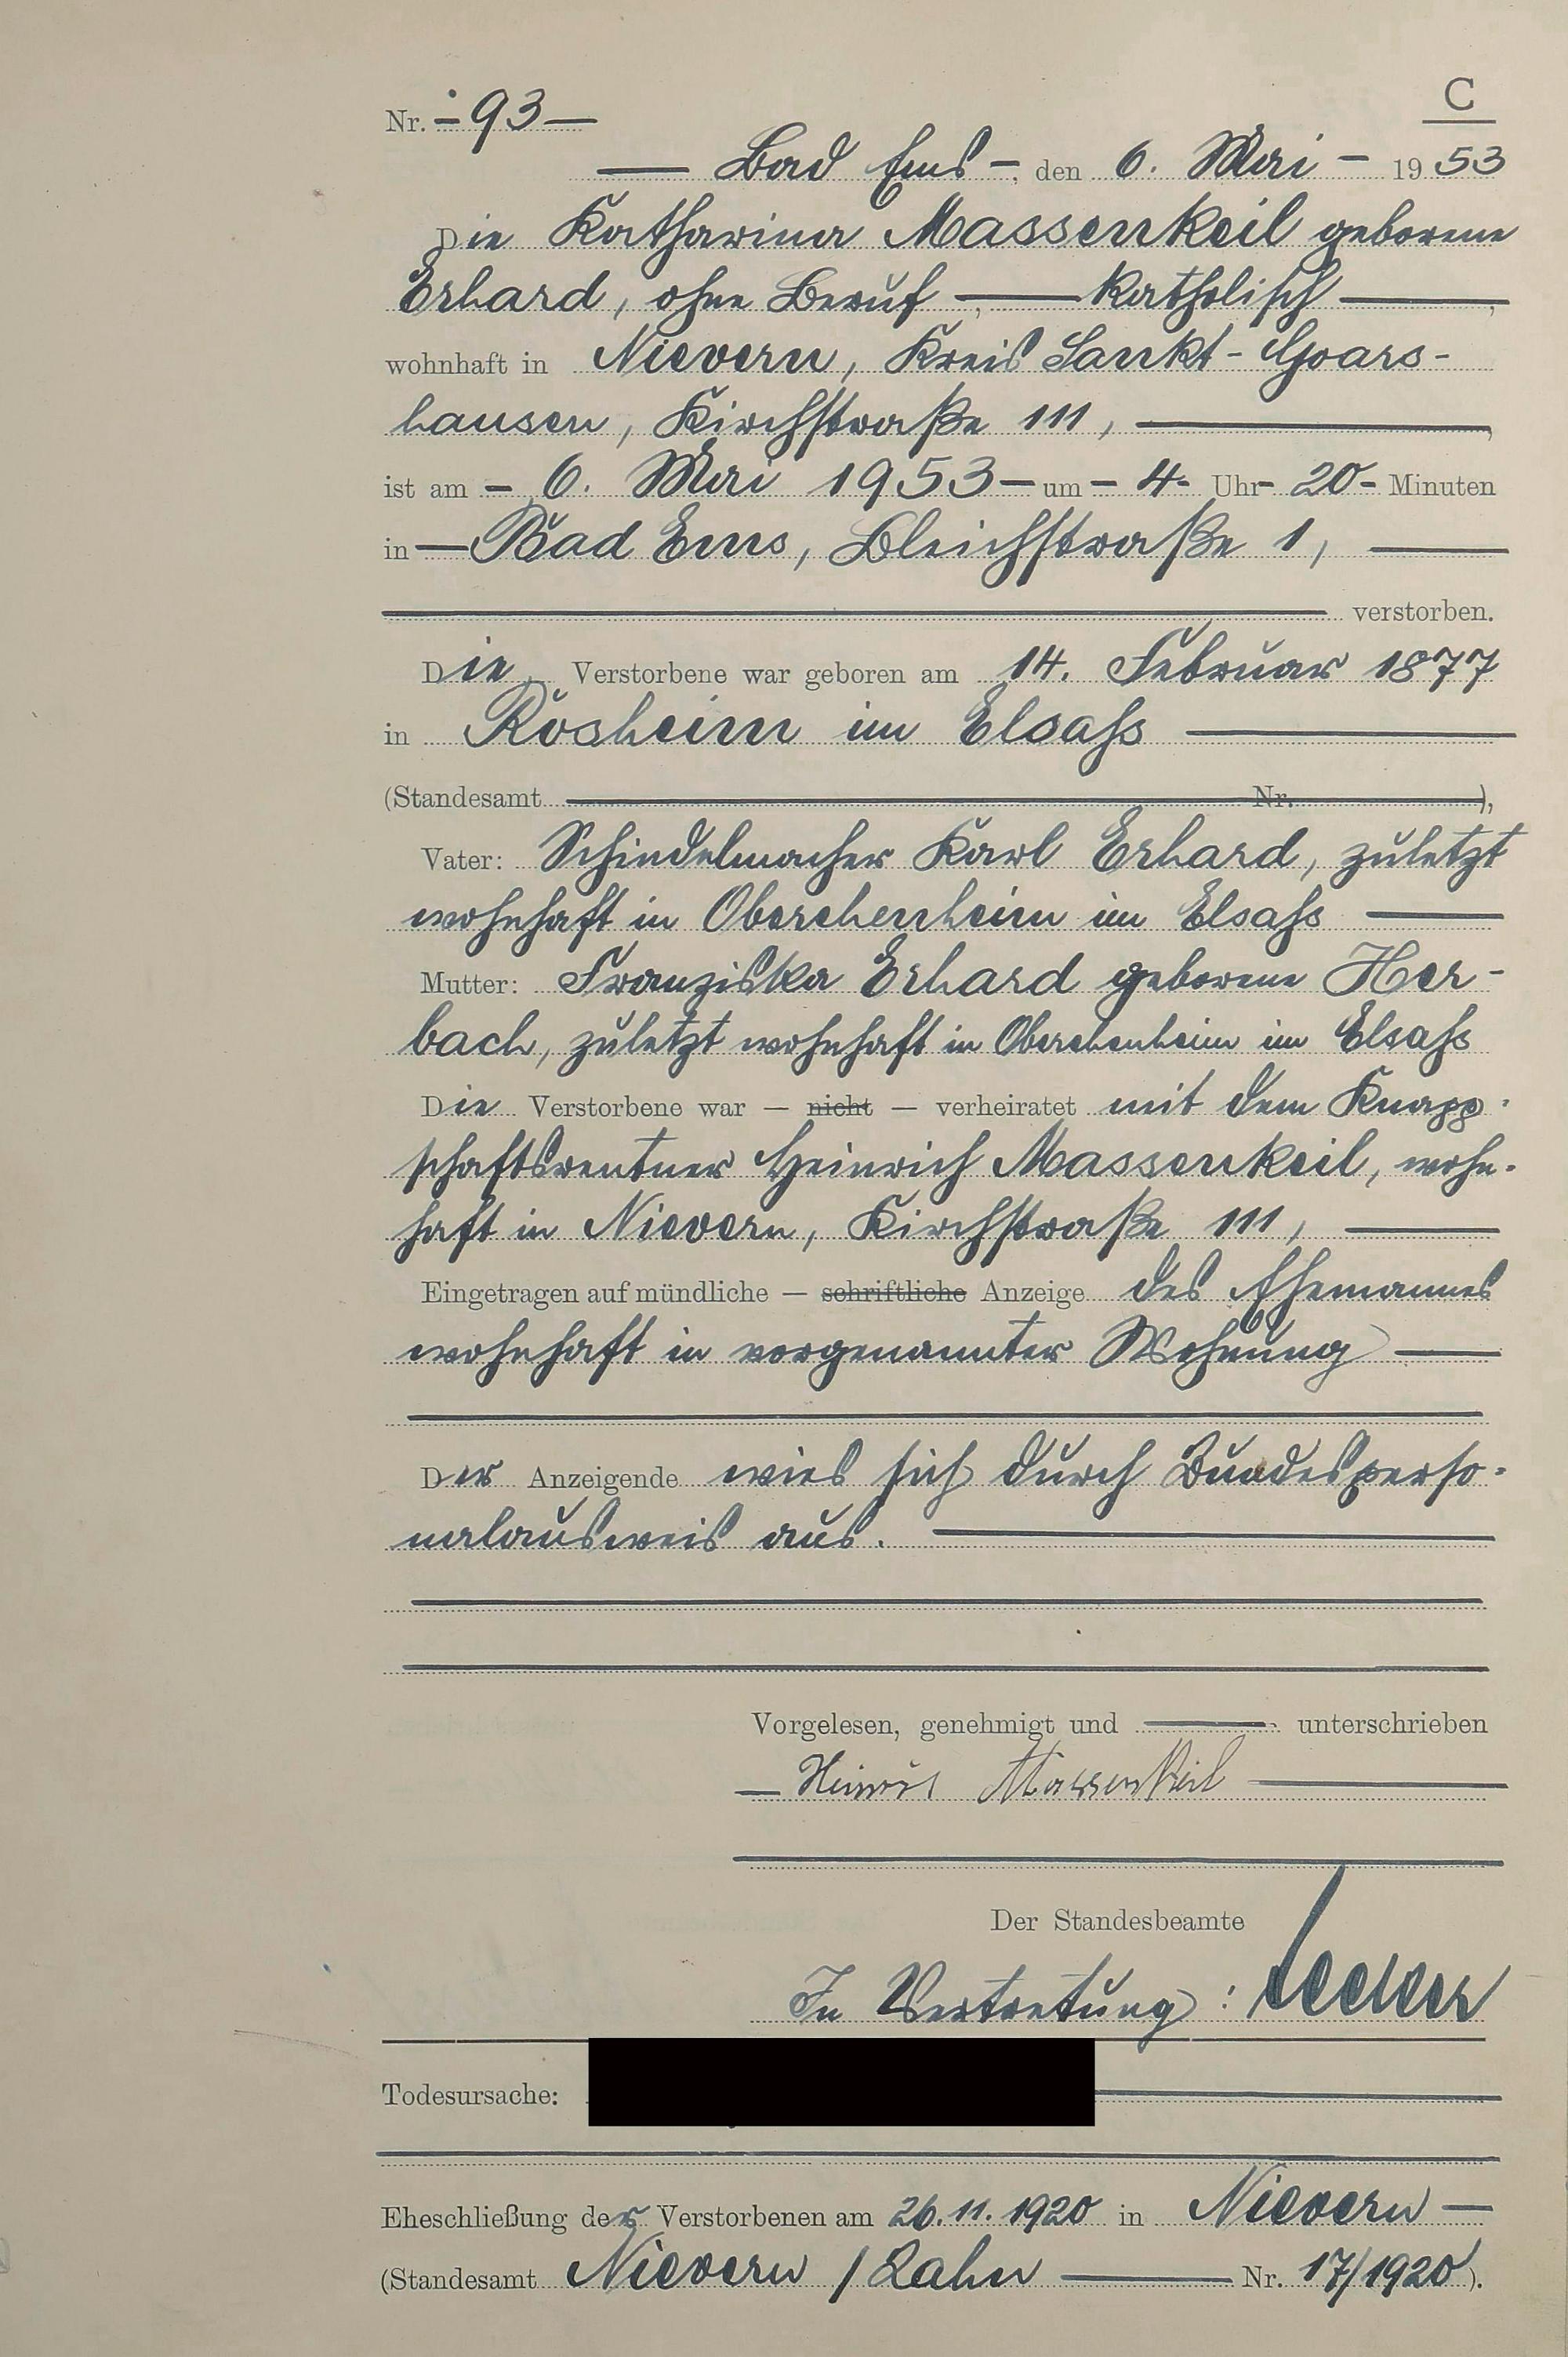 C
Nr. - 93 -
— Bad Ems -, den 6. Mai - 1953
Die Katharina Massenkeil geborene
Erhard, ohne Beruf —, — katholisch —,
wohnhaft in Nievern, Kreis Sankt-Goars-
hausen, Kirchstraße 111, —,
ist am - 6. Mai 1953 - um - 4 - Uhr - 20 - Minuten
in — Bad Ems, Bleichstraße 1, —
— verstorben.
Die Verstorbene war geboren am 14. Februar 1877
in Rosheim im Elsaß —
(Standesamt — Nr. —),
Vater: Schindelmacher Karl Erhard, zuletzt
wohnhaft in Oberehenheim im Elsaß —
Mutter: Franziska Erhard geborene Her-
bach, zuletzt wohnhaft in Oberehenheim im Elsaß
Die Verstorbene war — nicht — verheiratet mit dem Knapp-
schaftsrentner Heinrich Massenkeil, wohn-
haft in Nievern, Kirchstraße 111, —
Eingetragen auf mündliche — schriftliche Anzeige des Ehemannes
wohnhaft in vorgenannter Wohnung —
Der Anzeigende wies sich durch Bundesperso-
nalausweis aus. —
Vorgelesen, genehmigt und — unterschrieben
— Heinrich Massenkeil —
Der Standesbeamte
In Vertretung:
Todesursache:
Eheschließung der Verstorbenen am 26.11.1920 in Nievern —
(Standesamt Nievern / Lahn — Nr. 17/1920).